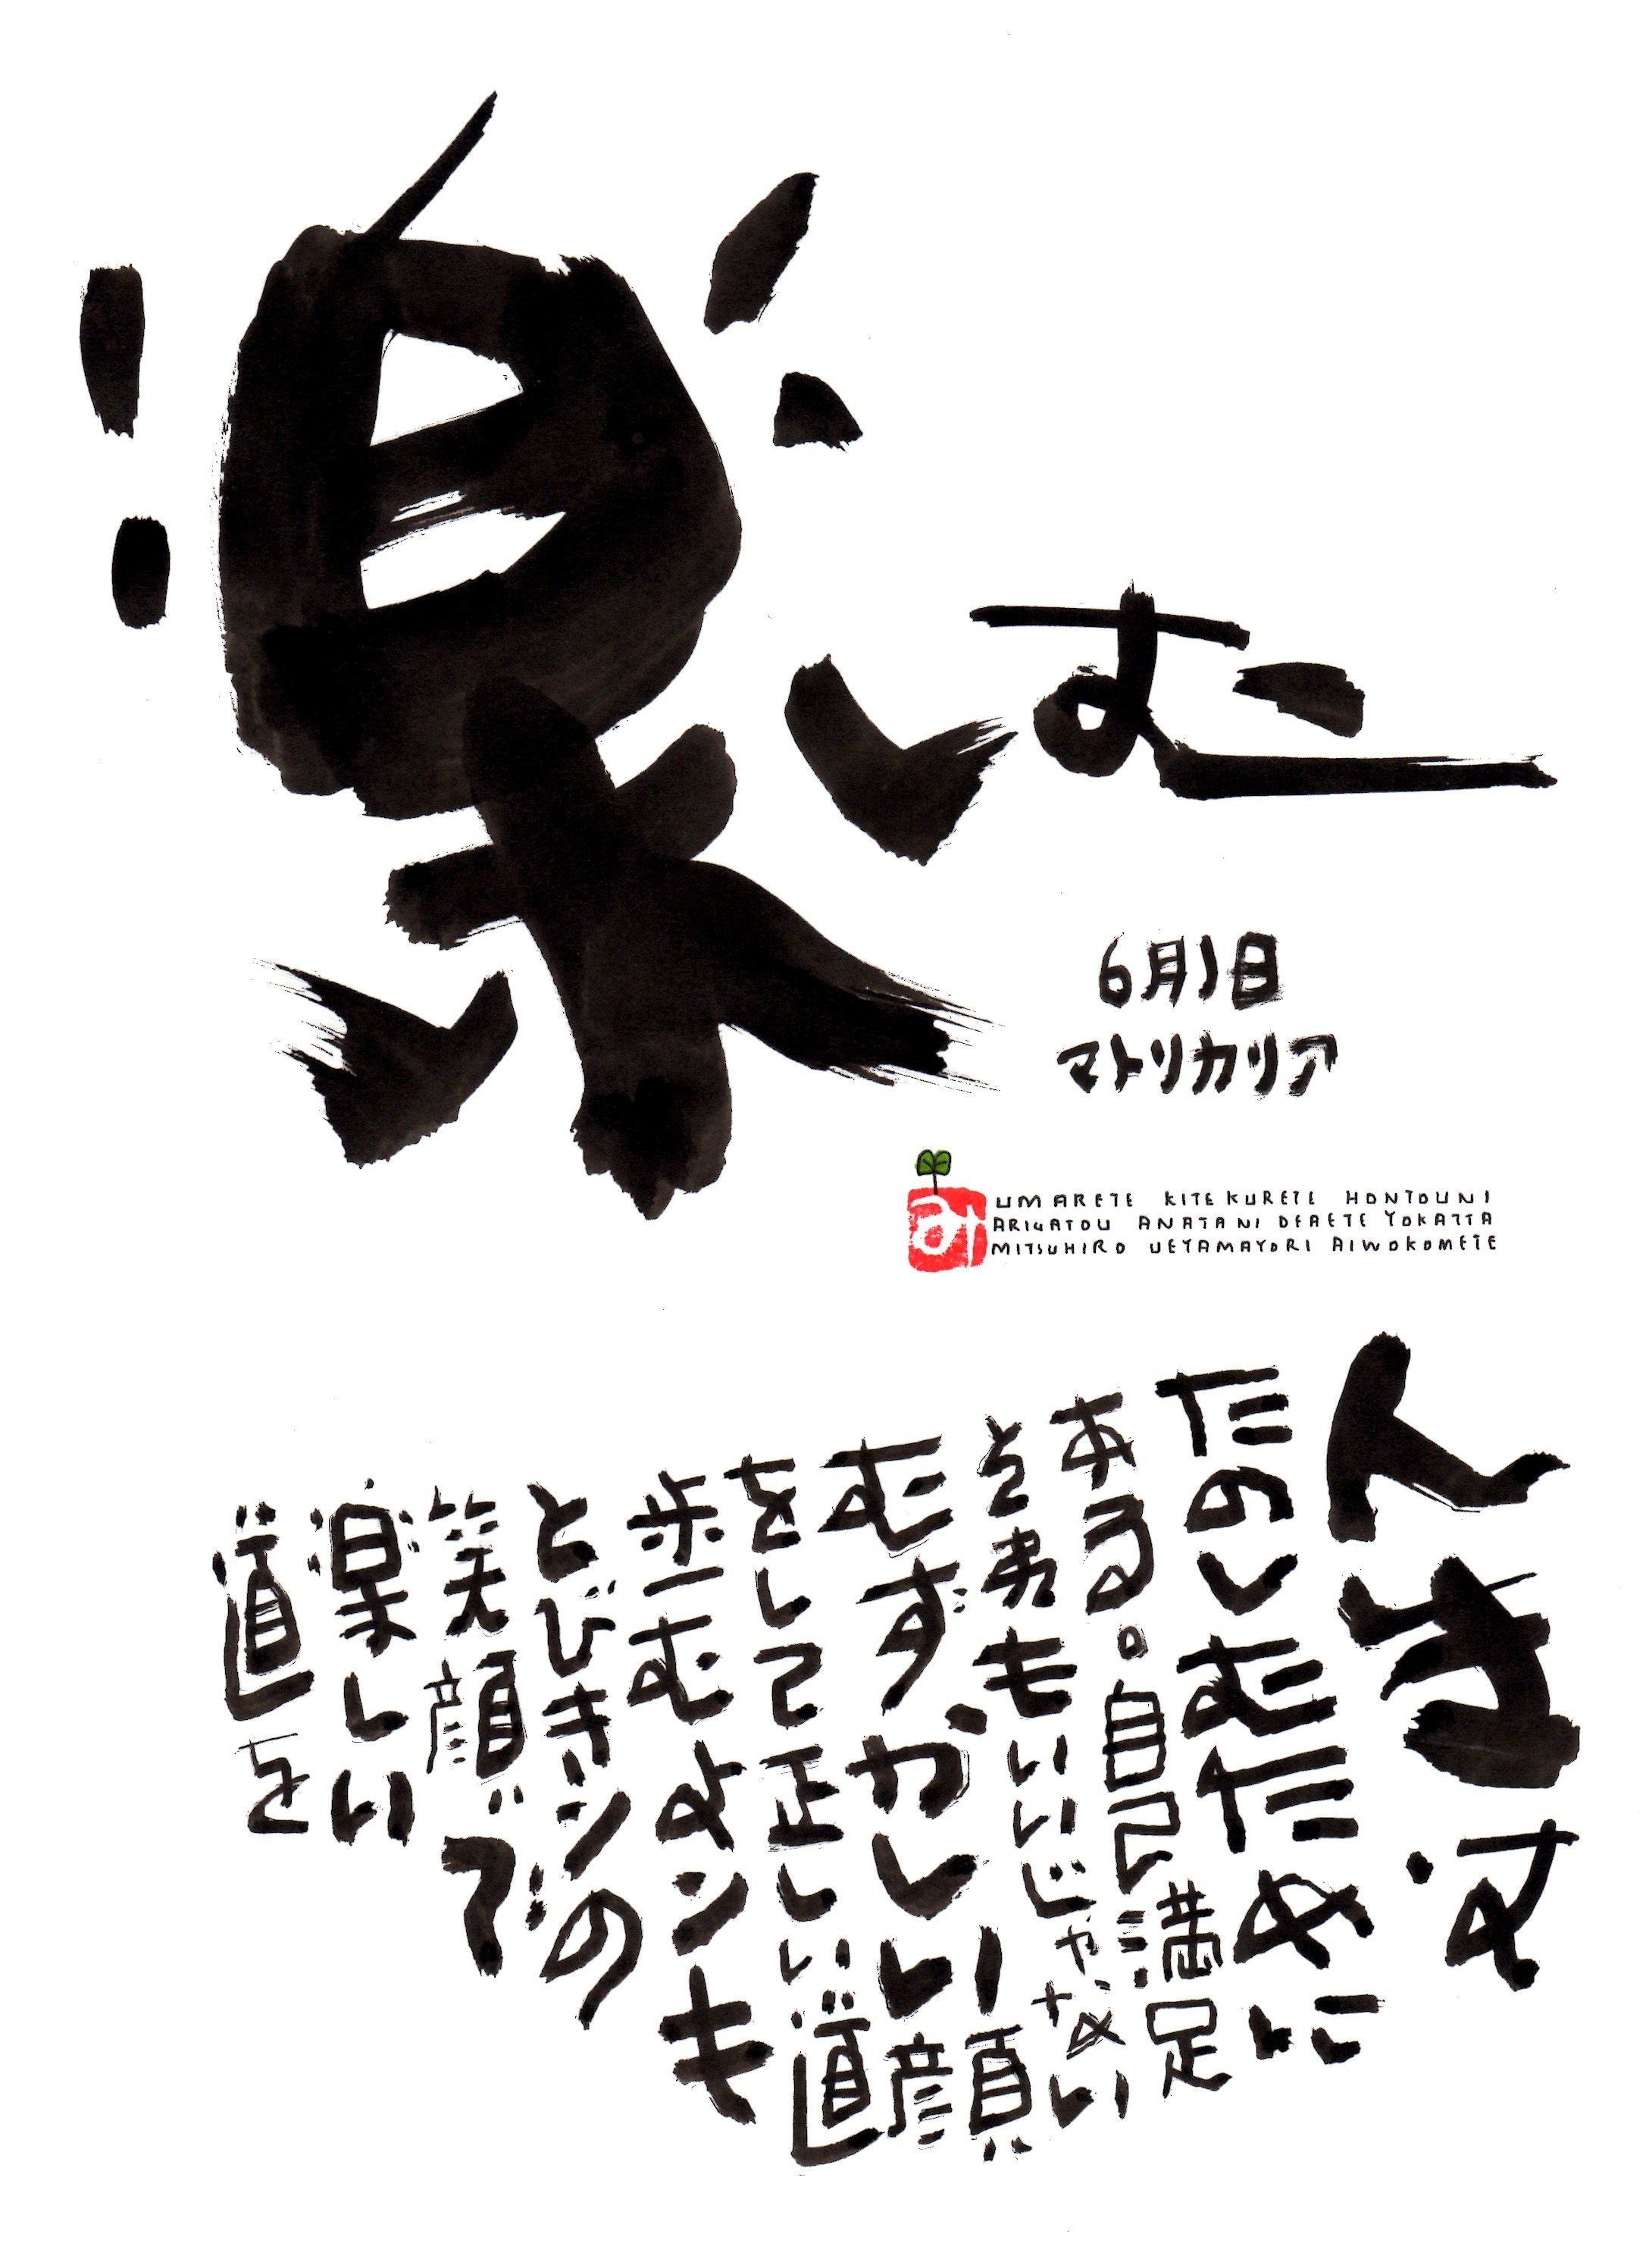 楽しむ
6月1日
マトリカリア
み
UMARETE KITEKURETE HONTOUNI
ARIGATOU ANATANI DEAETE YOKATTA
MITSUHIRO UEYAMAYORI AIWOKOMETE
人生は、
たのしむために
ある。自己満足
もいいじゃない
むずかしい顔
をして正しい道
歩むよりも
とびきりの
笑顔で
楽しい
道を